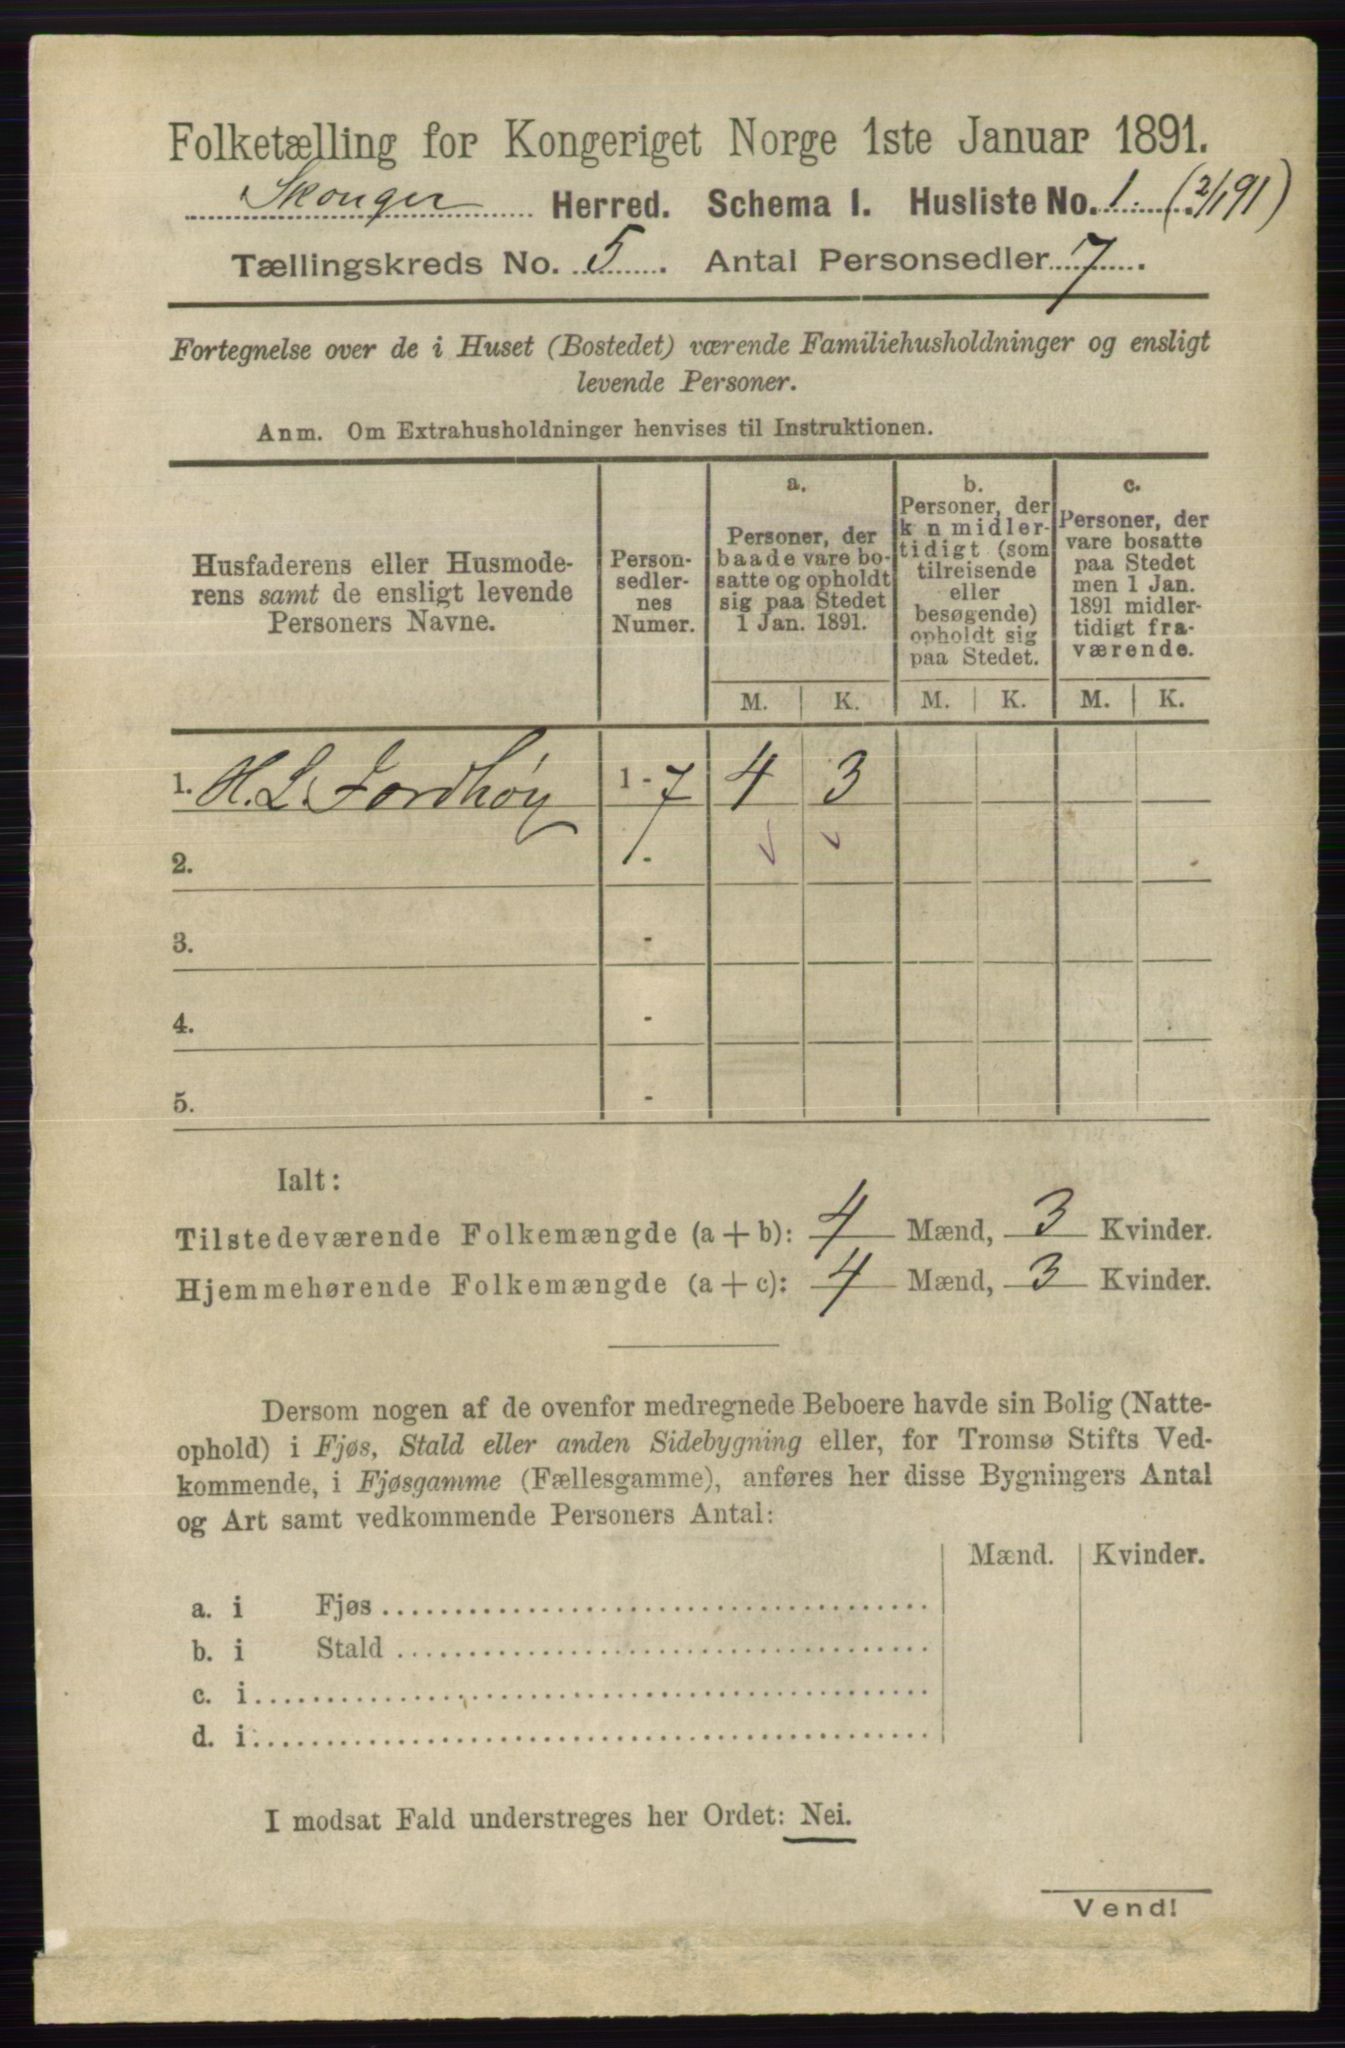 Folketælling for Kongeriget Norge 1ste Januar 1891.
Skouger Herred. Schema I. Husliste No. 1. (2/1 91)
Tællingskreds No. 5. Antal Personsedler 7.
Fortegnelse over de i Huset (Bostedet) værende Familiehusholdninger og ensligt
levende Personer.
Anm. Om Extrahusholdninger henvises til Instruktionen.
Husfaderens eller Husmode-
rens samt de ensligt levende
Personers Navne.
Person-
sedler-
nes
Numer.
a.
Personer, der
baade vare bo-
satte og opholdt
sig paa Stedet
1 Jan. 1891.
b.
Personer, der
k n midler-
tidigt (som
tilreisende
eller
besøgende)
opholdt sig
paa Stedet.
c.
Personer, der
vare bosatte
paa Stedet
men 1 Jan.
1891 midler-
tidigt fra-
værende.
M. K. M. K. M. K.
1. H. L. Jordhøy 1 - 7 4 3
2. -
3. -
4. -
5. -
Ialt:
Tilstedeværende Folkemængde (a + b): 4 Mænd, 3 Kvinder.
Hjemmehørende Folkemængde (a + c): 4 Mænd, 3 Kvinder.
Dersom nogen af de ovenfor medregnede Beboere havde sin Bolig (Natte-
ophold) i Fjøs, Stald eller anden Sidebygning eller, for Tromsø Stifts Ved-
kommende, i Fjøsgamme (Fællesgamme), anføres her disse Bygningers Antal
og Art samt vedkommende Personers Antal:
Mænd. Kvinder.
a. i Fjøs
b. i Stald
c. i
d. i
I modsat Fald understreges her Ordet: Nei.
Vend!